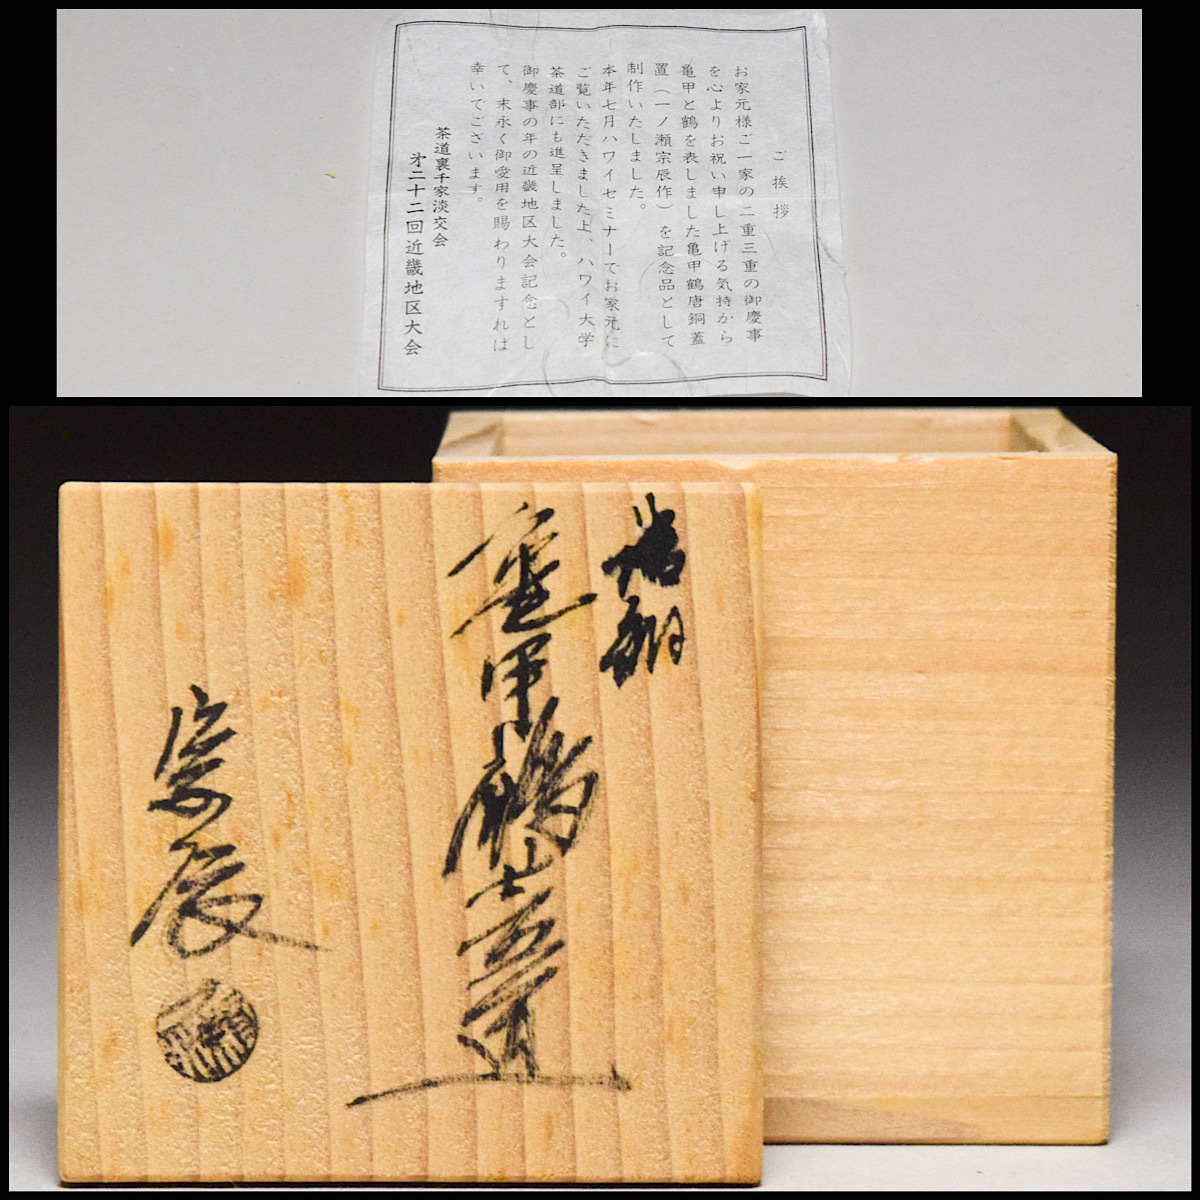 ご挨拶
お家元様ご一家の二重三重の御慶事
を心よりお祝い申し上げる気持から
亀甲と鶴を表しました亀甲鶴唐銅蓋
置(一ノ瀬宗辰作)を記念品として
制作いたしました。
本年七月ハワイセミナーでお家元に
ご覧いただきました上、ハワイ大学
茶道部にも進呈しました。
御慶事の年の近畿地区大会記念とし
て、末永く御愛用を賜わりますれば
幸いでございます。
茶道裏千家淡交会
㐧二十二回近畿地区大会
唐銅
亀甲鶴蓋置
宗辰